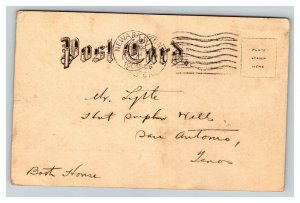 Post Card.
NEWARK
PLACE
STAMP
HERE
Mr. Lytte
Hot Sulphur Wells.
San Antonio,
Texas
Bath House